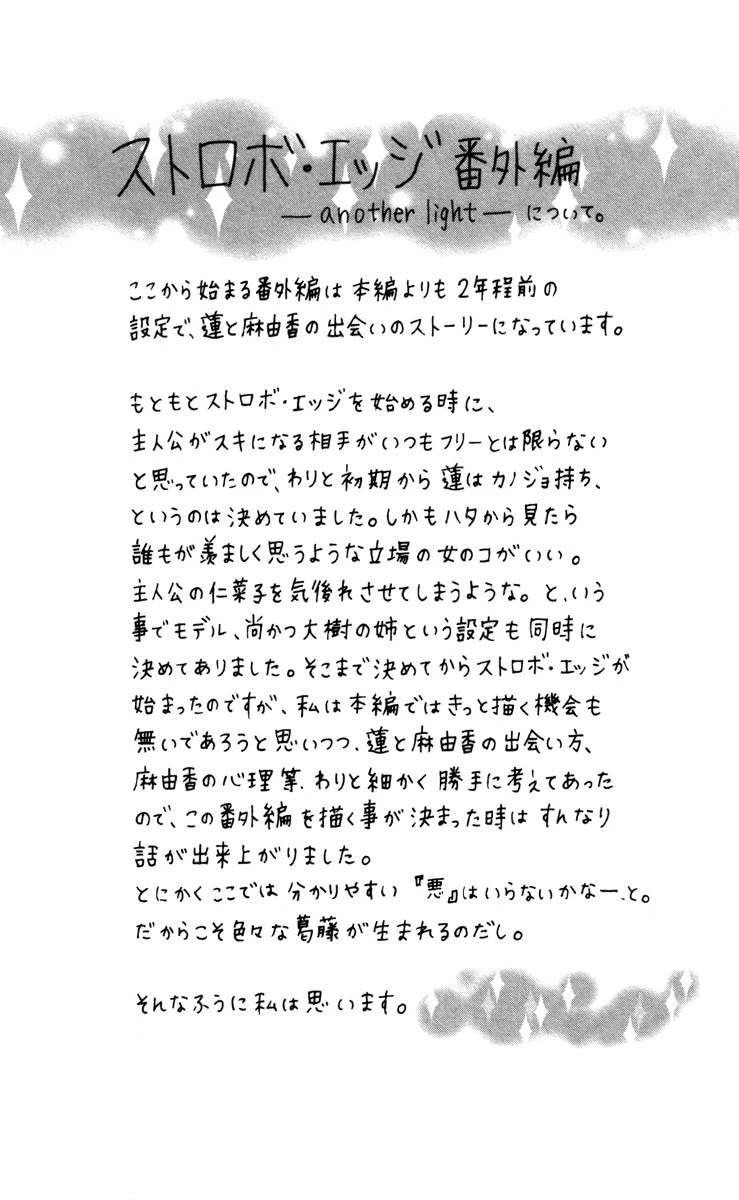 ストロボ・エッジ番外編
―another light― について。
ここから始まる番外編は本編よりも2年程前の
設定で、蓮と麻由香の出会いのストーリーになっています。
もともとストロボ・エッジを始める時に、
主人公がスキになる相手がいつもフリーとは限らない
と思っていたので、わりと初期から蓮はカノジョ持ち、
というのは決めていました。しかもハタから見たら
誰もが羨ましく思うような立場の女のコがいい。
主人公の仁菜子を気後れさせてしまうような。と、いう
事でモデル、尚かつ大樹の姉という設定も同時に
決めてありました。そこまで決めてからストロボ・エッジが
始まったのですが、私は本編ではきっと描く機会も
無いであろうと思いつつ、蓮と麻由香の出会い方、
麻由香の心理等、わりと細かく勝手に考えてあった
ので、この番外編を描く事が決まった時はすんなり
話が出来上がりました。
とにかくここでは分かりやすい『悪』はいらないかなー、と。
だからこそ色々な葛藤が生まれるのだし。
そんなふうに私は思います。